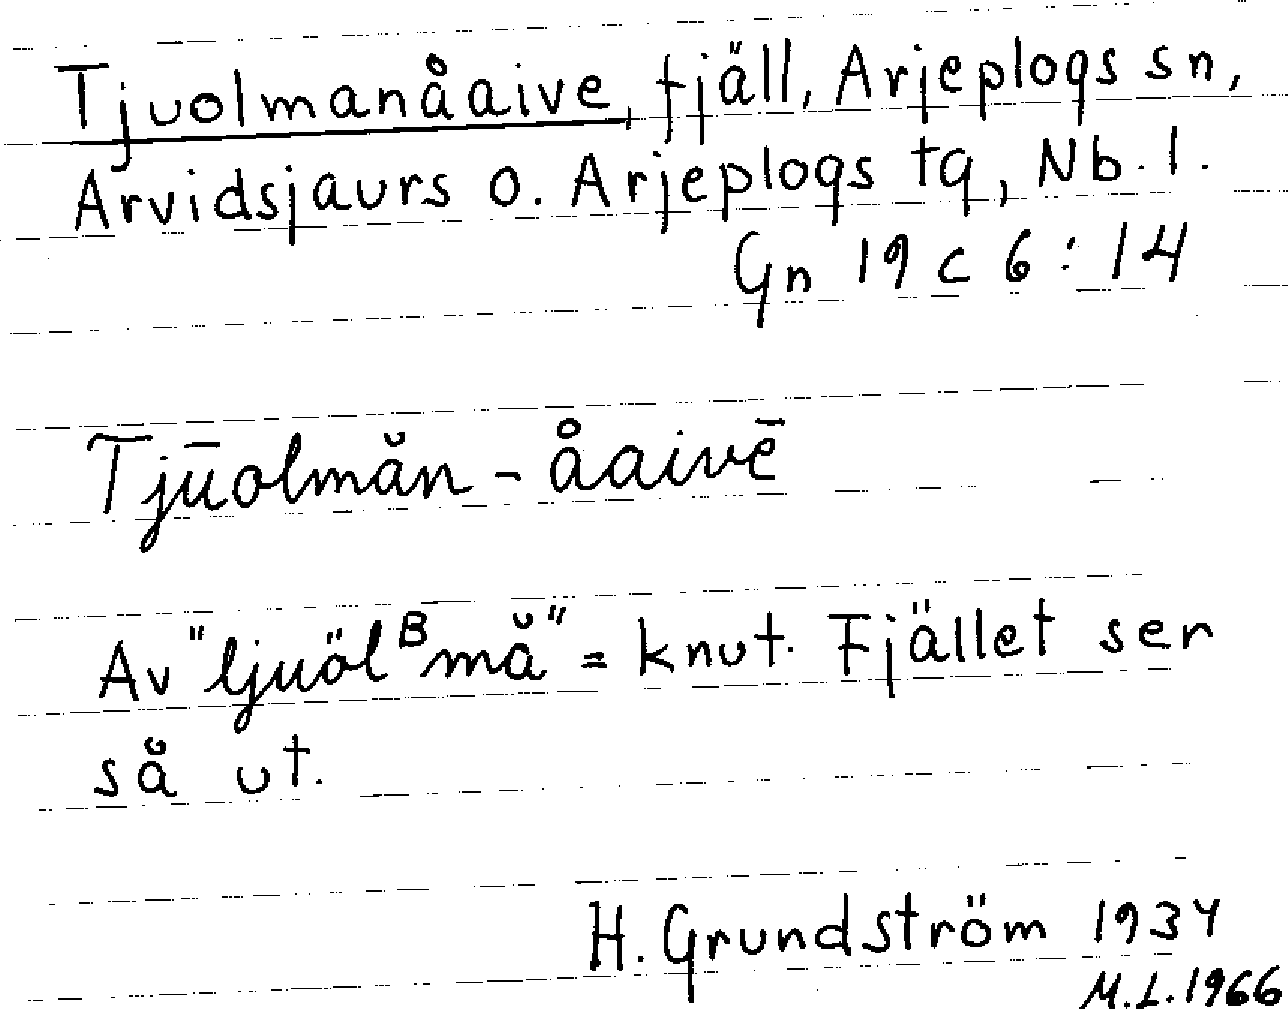 Tjuolmanåaive, fjäll, Arjeplogs sn,
Arvidsjaurs o. Arjeplogs tg, Nb. l.
Gn 19 c 6:14
Tjūolmăn-åaivē
Av "ljuölᴮmă" = knut. Fjället ser
så ut.
H. Grundström 1934
M.L.1966